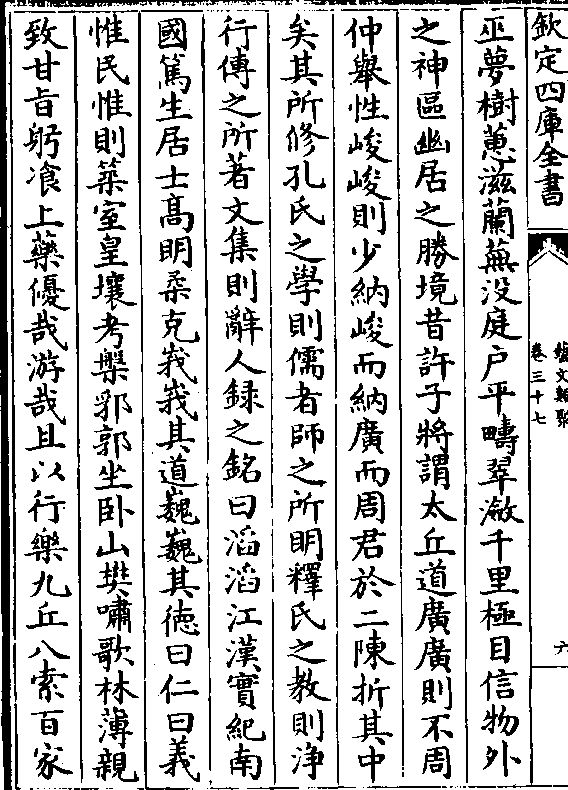 欽定四庫全書
藝文類聚
卷三十七
六
巫夢樹蕙滋蘭蕪没庭户平疇翠潋千里極目信物外
之神區幽居之勝境昔許子將謂太丘道廣廣則不周
仲舉性峻峻則少納峻而納廣而周君於二陳折其中
矣其所修孔氏之學則儒者師之所明釋氏之教則浄
行傳之所著文集則辭人録之銘曰滔滔江漢實紀南
國篤生居士髙明柔克峩峩其道巍巍其徳曰仁曰義
惟民惟則築室皇壤考槃郛郭坐卧山樊嘯歌林薄親
致甘旨躬飡上藥優哉游哉且以行樂九丘八索百家